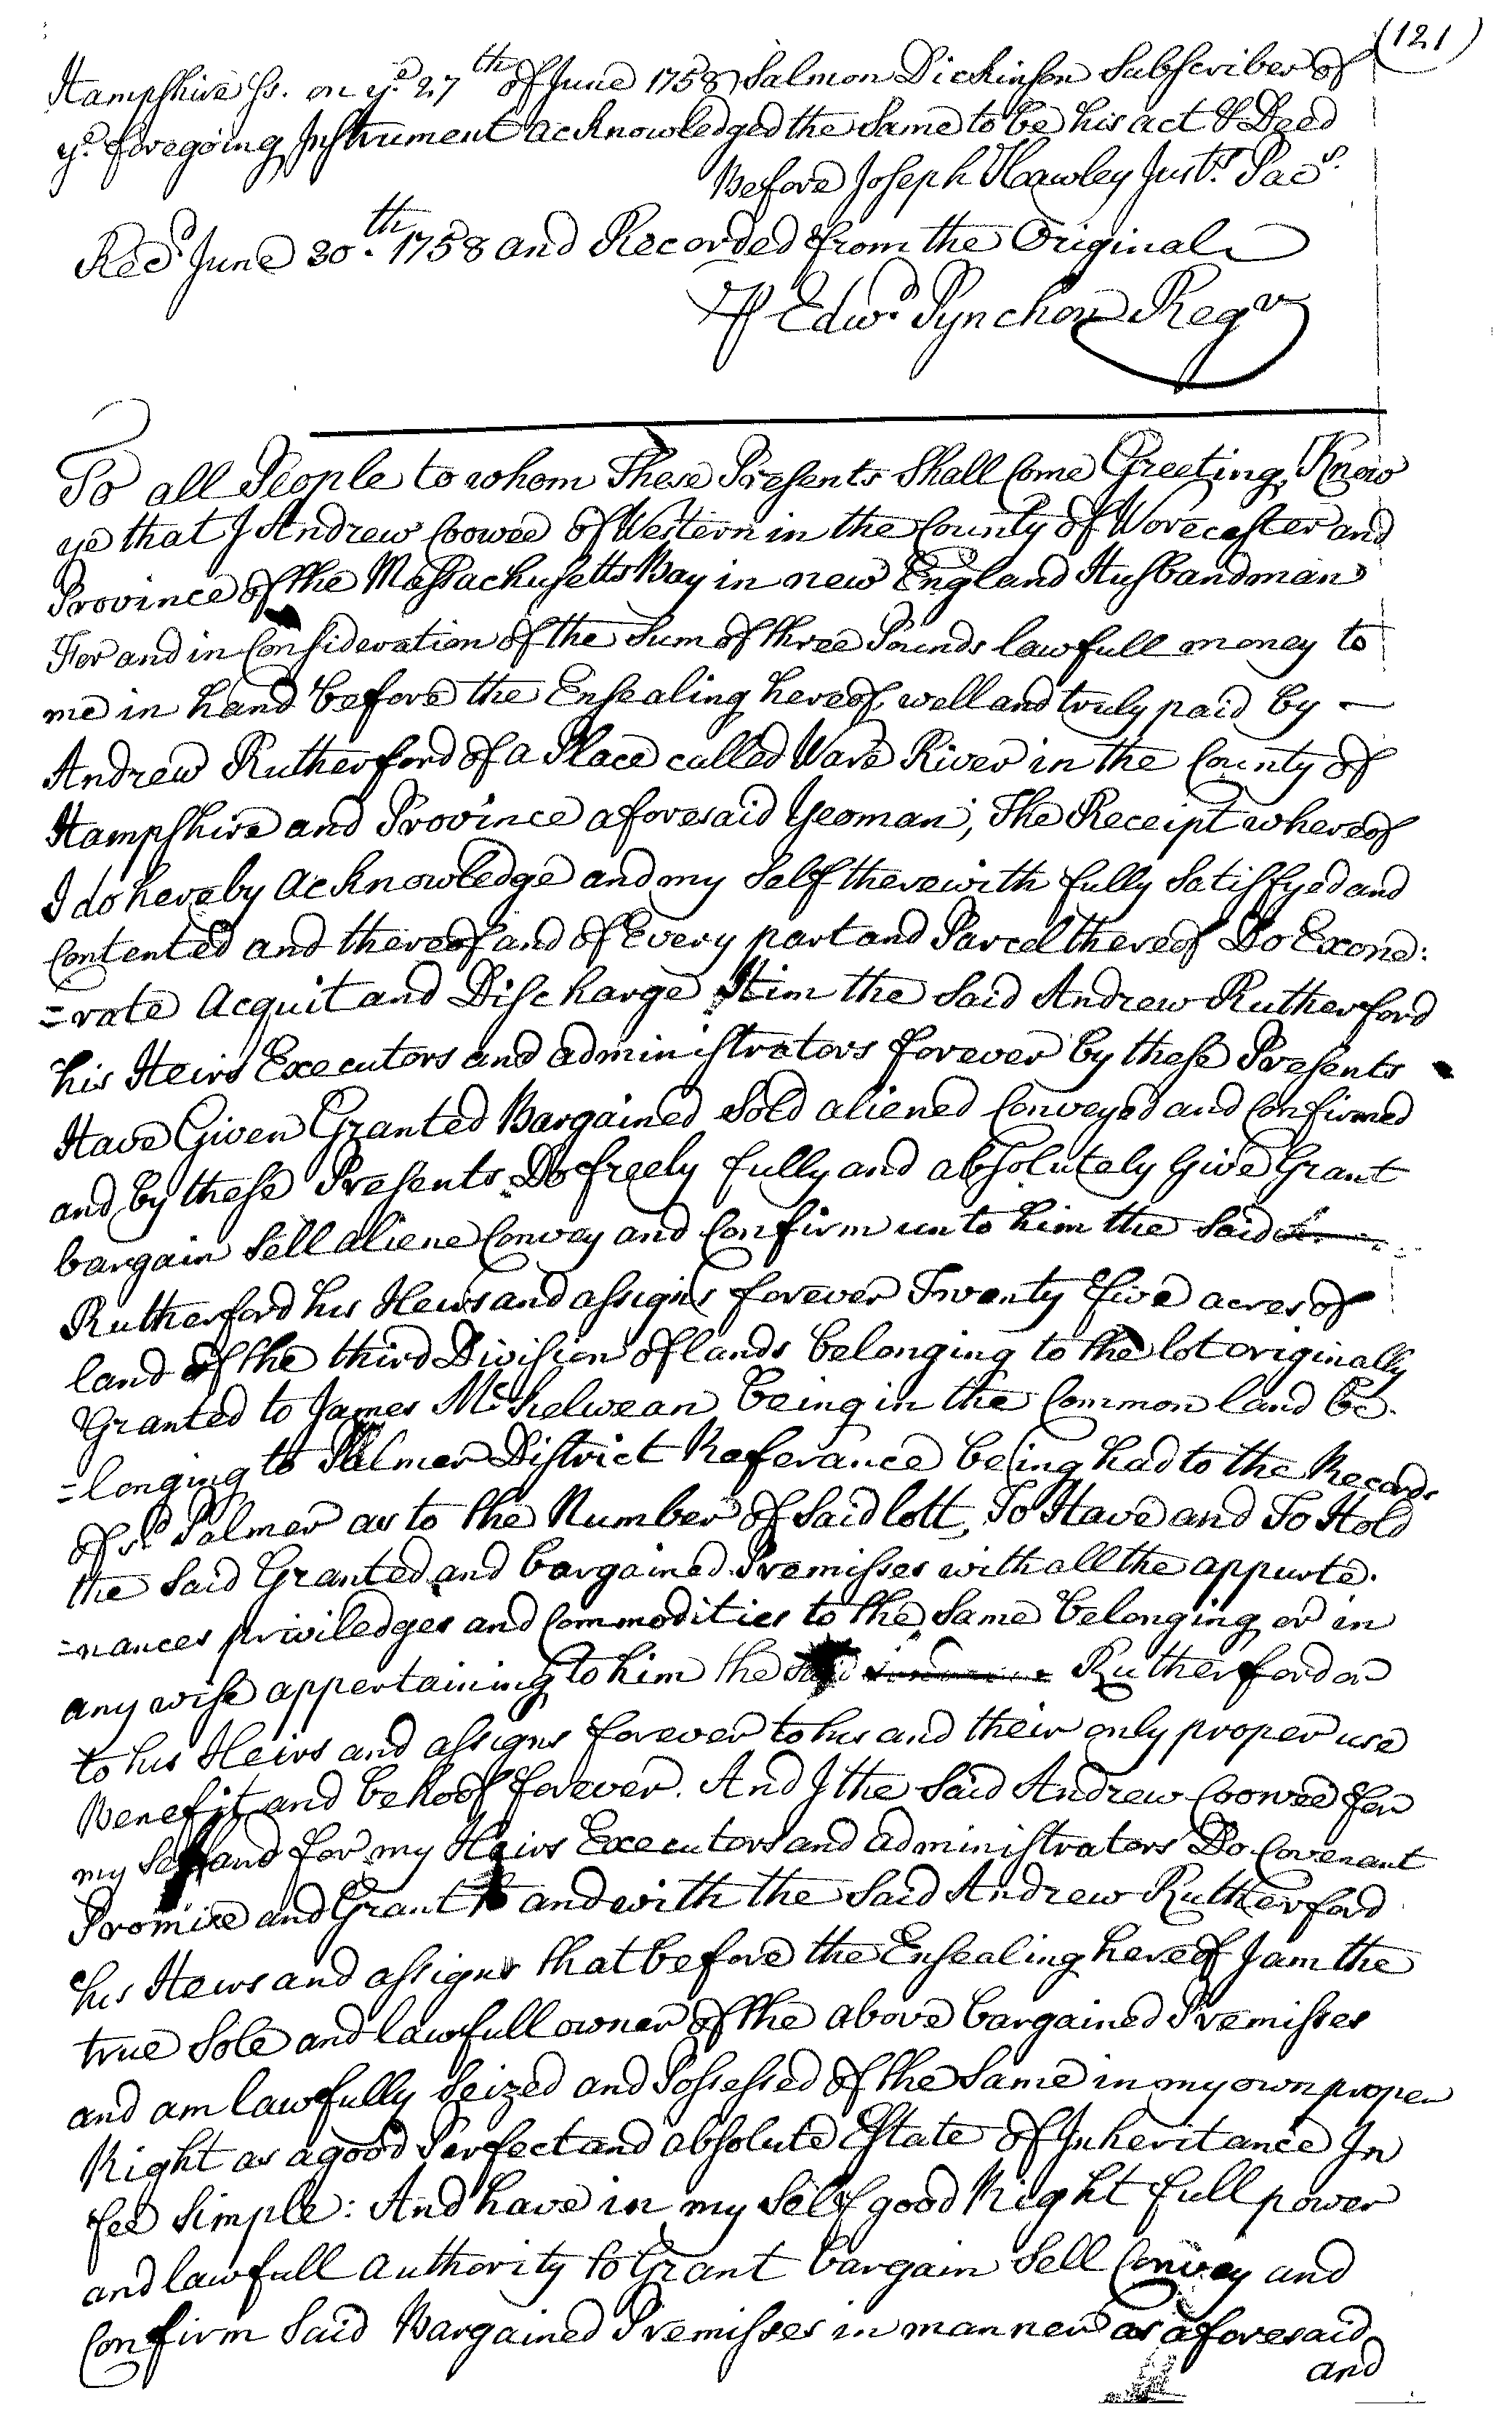 (121)
Hampshire ss. on ye. 27th of June 1758 Salmon Dickinson Subscriber of
ye. foregoing Instrument acknowledged the Same to be his act & Deed
Before Joseph Hawley Just. Pacs.
Recd. June 30th. 1758 and Recorded from the Original
P Edwd. Pynchon Regr
To all People to whom These Presents Shall Come Greeting, Know
ye that I Andrew Coowee of Western in the County of Worecester and
Province of the Massachusetts Bay in new England Husbandman
For and in Consideration of the Sum of three Pounds lawfull money to
me in hand before the Ensealing hereof, well and truly paid by —
Andrew Rutherford of a Place called Ware River in the County of
Hampshire and Province aforesaid Yeoman; The Receipt whereof
I do hereby acknowledge and my Self therewith fully Satisfyed and
Contented and thereof and of Every part and Parcel thereof Do Exone:
=rate Acquit and Discharge Him the Said Andrew Rutherford
his Heirs Executors and administrators forever by these Presents
Have Given Granted Bargained Sold aliened Conveyed and Confirmed
and by these Presents Do freely fully and absolutely Give Grant
bargain Sell aliene Convey and Confirm unto him the Said
Rutherford his Heirs and assigns forever Twenty five acres of
land of the third Division of lands belonging to the lot originally
Granted to James Mc.kelwean being in the Common land be.
=longing to Palmer District Referance being had to the Records
of sd. Palmer as to the Number of Said lott, To Have and To Hold
the Said Granted and bargained Premisses with all the appurte.
=nances priviledges and Commodities to the Same belonging or in
any wise appertaining to him the Said Rutherford or
to his Heirs and assigns forever to his and their only proper use
Benefit and behoof forever. And I the Said Andrew Coowee for
my Self and for my Heirs Executors and administrators Do Covenant
Promise and Grant to and with the Said Andrew Rutherford
his Heirs and assigns that before the Ensealing hereof I am the
true Sole and lawfull owner of the above bargained Premisses
and am lawfully Seized and Possessed of the Same in my own proper
Right as a good Perfect and absolute Estate of Inheritance In
fee Simple: And have in my Self good Right full power
and lawfull authority to Grant bargain Sell Convey and
Confirm Said Bargained Premisses in manner as aforesaid
and